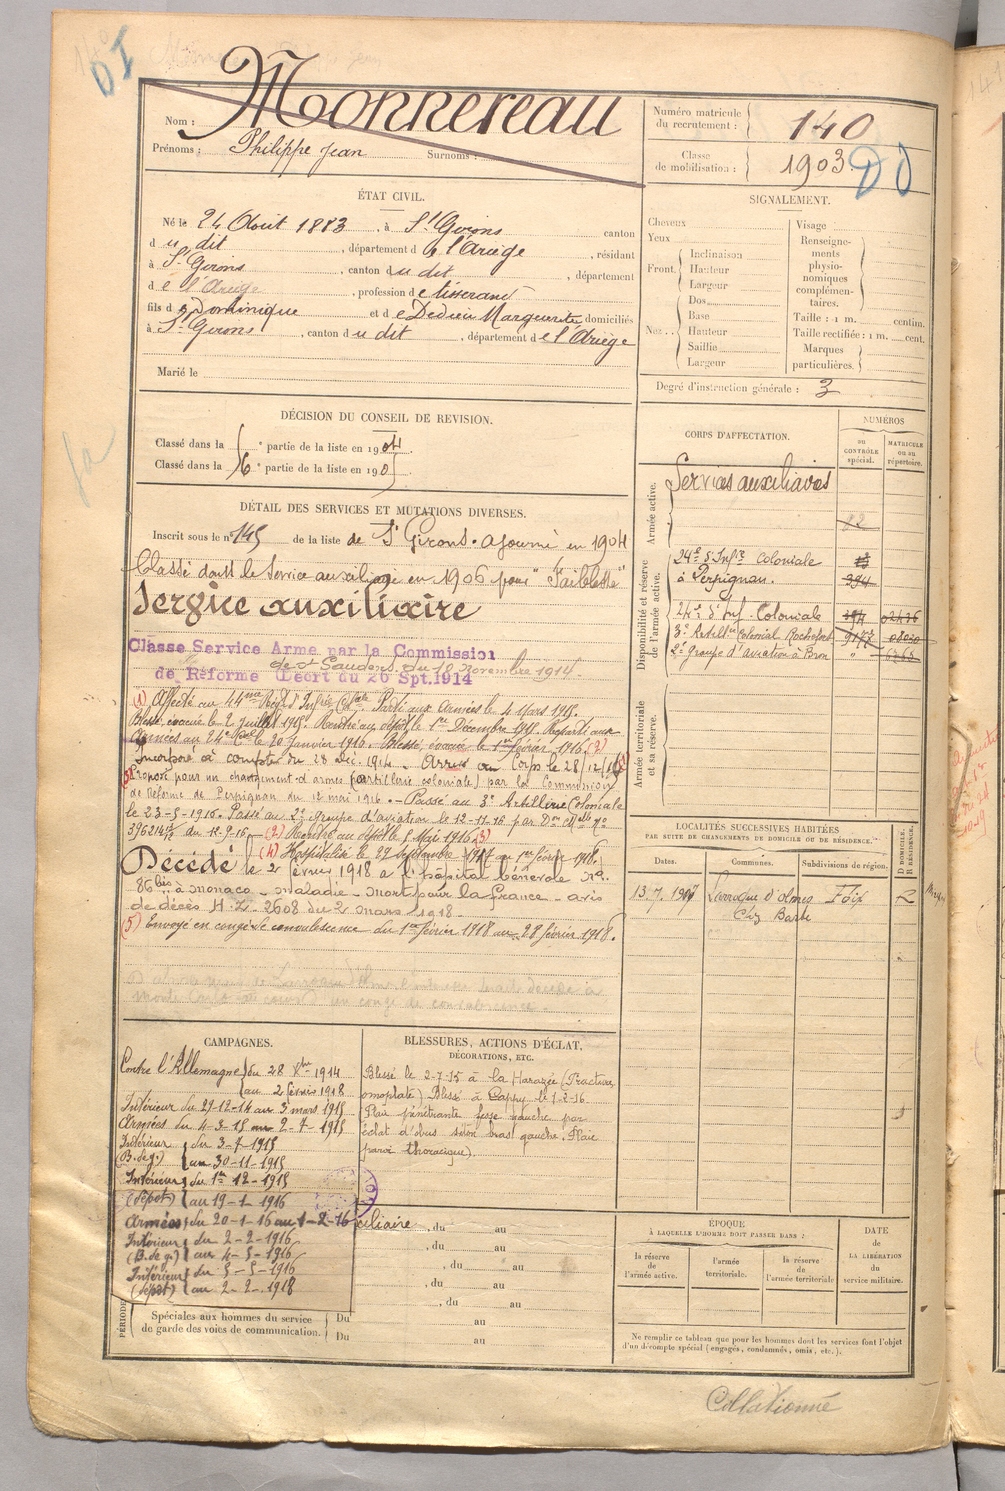 Nom : Monnereau
Prénoms : Philippe Jean Surnoms :
Numéro matricule du recrutement : 140
Classe de mobilisation : 1903
ÉTAT CIVIL.
Né le 24 Août 1883, à St Girons canton
du dit, département de l'Ariège, résidant
à St Girons, canton du dit, département
de l'Ariège, profession de tisserand
fils de Dominique et de Dedieu Marguerite domiciliés
à St Girons, canton du dit, département de l'Ariège
Marié le
SIGNALEMENT.
Cheveux
Yeux
Front. Inclinaison
Hauteur
Largeur
Nez Dos
Base
Hauteur
Saillie
Largeur
Visage
Renseignements physionomiques complémentaires.
Taille : 1 m. centim.
Taille rectifiée : 1 m. cent.
Marques particulières.
Degré d'instruction générale : 3
DÉCISION DU CONSEIL DE REVISION.
Classé dans la e partie de la liste en 1904
Classé dans la 6e partie de la liste en 190
DÉTAIL DES SERVICES ET MUTATIONS DIVERSES.
Inscrit sous le n° 145 de la liste de St Girons. Ajourné en 1904
Classé dans le Service auxiliaire en 1906 pour "Faiblesse"
Service auxiliaire
Classe Service Armé par la Commission
de St Gaudens du 18 Novembre 1914.
de Réforme Décret du 26 Spt. 1914
(1) Affecté au 44me Régt d'Infrie Cole. Parti aux Armées le 4 Mars 1915.
Blessé, évacué le 2 Juillet 1915. Rentré au dépôt le 1er Décembre 1915. Reparti aux
Armées au 24e Cal le 20 Janvier 1916. Blessé, évacué le 1er février 1916. (2)
Incorporé à compter du 28 Déc. 1914 - Arrivé au Corps le 28/12/14
Proposé pour un changement d'armes (artillerie coloniale) par la Commission
de Réforme de Perpignan du 12 mai 1916. - Passé au 3e Artillerie Coloniale
le 23-5-1916. Passé au 2e groupe d'aviation le 12-11-16 par Don Melle No
du 18-9-16. (2) Rentré au dépôt le 5 Mai 1916 (3)
(4) Hospitalisé le 29 Septembre 1917 au 1er février 1918.
Décédé le 2 février 1918 à l'hôpital bénévole No
86 bis à Monaco - maladie - mort pour la France - avis
de décès H.Z. 2608 du 2 mars 1918.
(5) Envoyé en congé de convalescence du 1er février 1918 au 28 février 1918.
CORPS D'AFFECTATION.
NUMÉROS
DU CONTRÔLE spécial.
MATRICULE OU DU répertoire.
Armée active.
Services auxiliaires
Disponibilité et réserve de l'armée active.
24e d'Infrie Coloniale
à Perpignan. 394
24e d'Inf. Coloniale 394
3e Artillrie Colonial Rochefort 9177
2e Groupe d'aviation à Bron "
Armée territoriale et sa réserve.
LOCALITÉS SUCCESSIVES HABITÉES
PAR SUITE DE CHANGEMENTS DE DOMICILE OU DE RÉSIDENCE.
Dates. Communes. Subdivisions de région. D DOMICILE. R RÉSIDENCE.
13.7.1907 Larroque d'Olmes Foix R
CAMPAGNES.
Contre l'Allemagne du 28 Xbre 1914
au 2 février 1918
Intérieur du 29-12-14 au 3 mars 1915
Armées du 4-3-15 au 2-7-1915
Intérieur (B. de g.) du 3-7-1915
au 30-11-1915
Intérieur (dépôt) du 1er 12-1915
au 19-1-1916
Armées du 20-1-16 au 1-2-16
Intérieur (B. de g.) du 2-2-1916
au 4-5-1916
Intérieur (dépôt) du 5-5-1916
au 2-2-1918
BLESSURES, ACTIONS D'ÉCLAT.
DÉCORATIONS, ETC.
Blessé le 2-7-15 à la Harazée (Fracture
omoplate) Blessé à Cappy le 1-2-16
Plaie pénétrante fesse gauche par
éclat d'obus séton bras gauche. Plaie
paroi thoracique).
ciliaire, du au
, du au
, du au
, du au
, du au
Spéciales aux hommes du service de garde des voies de communication. Du au
Du au
ÉPOQUE
À LAQUELLE L'HOMME DOIT PASSER DANS :
la réserve de l'armée active.
l'armée territoriale.
la réserve de l'armée territoriale
DATE de LA LIBÉRATION du service militaire.
Ne remplir ce tableau que pour les hommes dont les services font l'objet
d'un décompte spécial (engagés, condamnés, omis, etc.).
Collationné